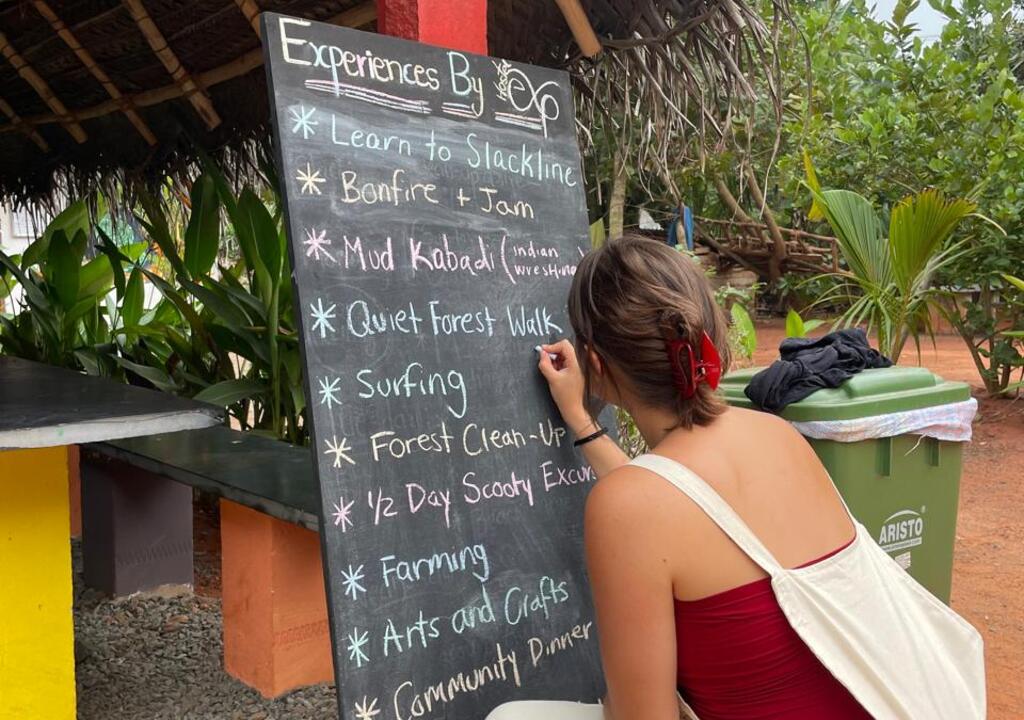 Experiences By
* Learn to Slackline
* Bonfire + Jam
* Mud Kabadi (indian
wreshing
* Quiet Forest Walk
* Surfing
* Forest Clean-Up
* 1/2 Day Scooty Excur
* Farming
* Arts and Crafts
* Community Dinner
ARISTO